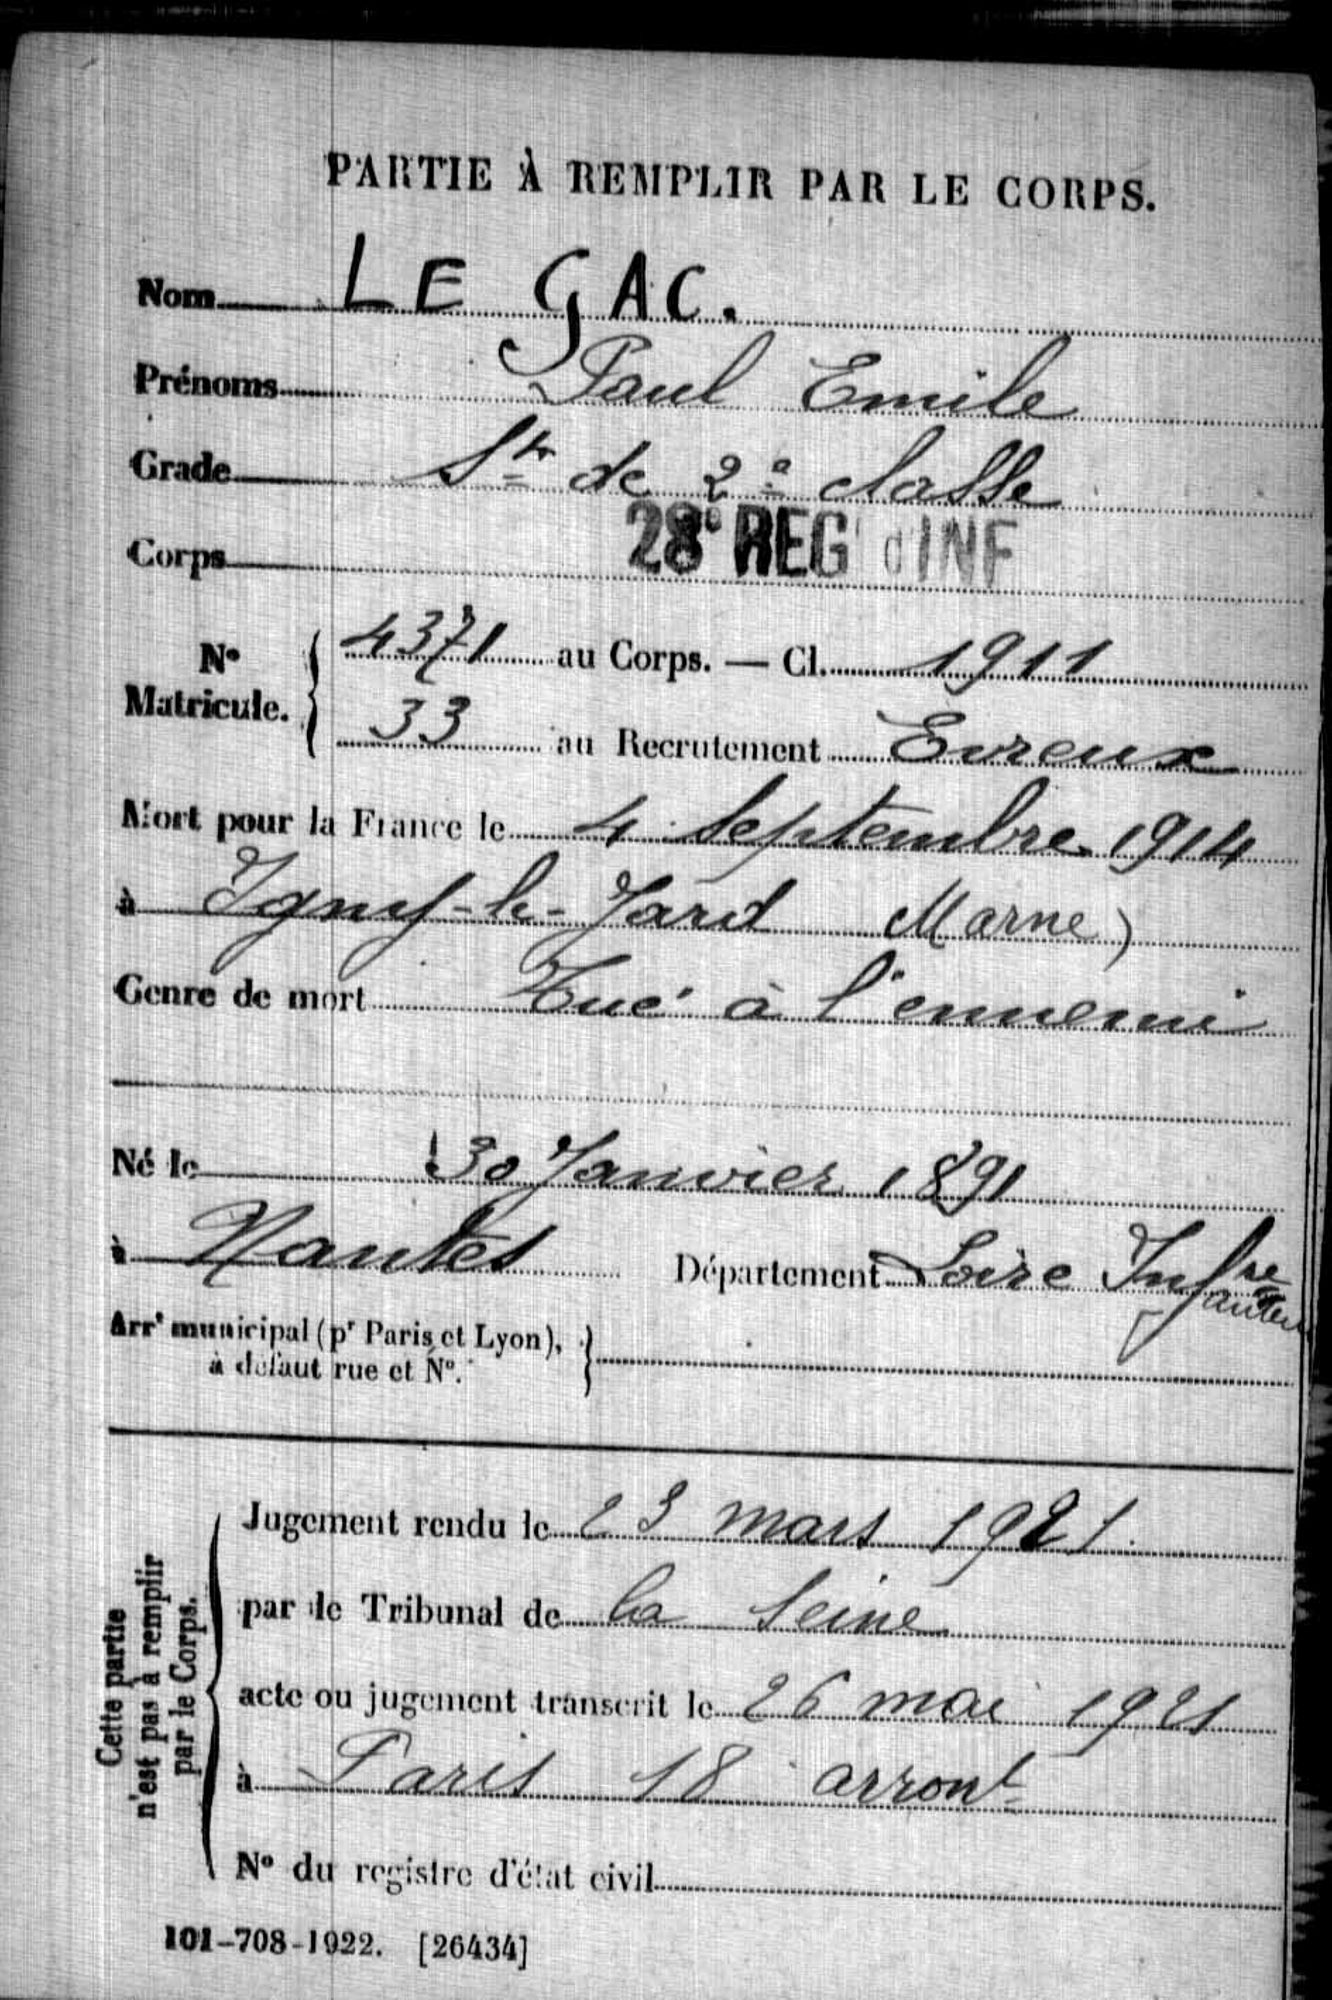 PARTIE À REMPLIR PAR LE CORPS.
Nom LE GAC.
Prénoms Paul Emile
Grade St de 2e classe
Corps 28e REGt d'INF
No Matricule. 4371 au Corps. — Cl. 1911
33 au Recrutement Evreux
Mort pour la France le 4 Septembre 1914
à Igny-le-Jard Marne)
Genre de mort Tué à l'ennemi
Né le 30 Janvier 1891
à Nantes Département Loire Infre
Arrt municipal (pr Paris et Lyon),
à défaut rue et No.
Cette partie
n'est pas à remplir
par le Corps.
Jugement rendu le 23 mars 1921.
par le Tribunal de la Seine
acte ou jugement transcrit le 26 mai 1921
à Paris 18 arront
No du registre d'état civil
101-708-1922. [26434]